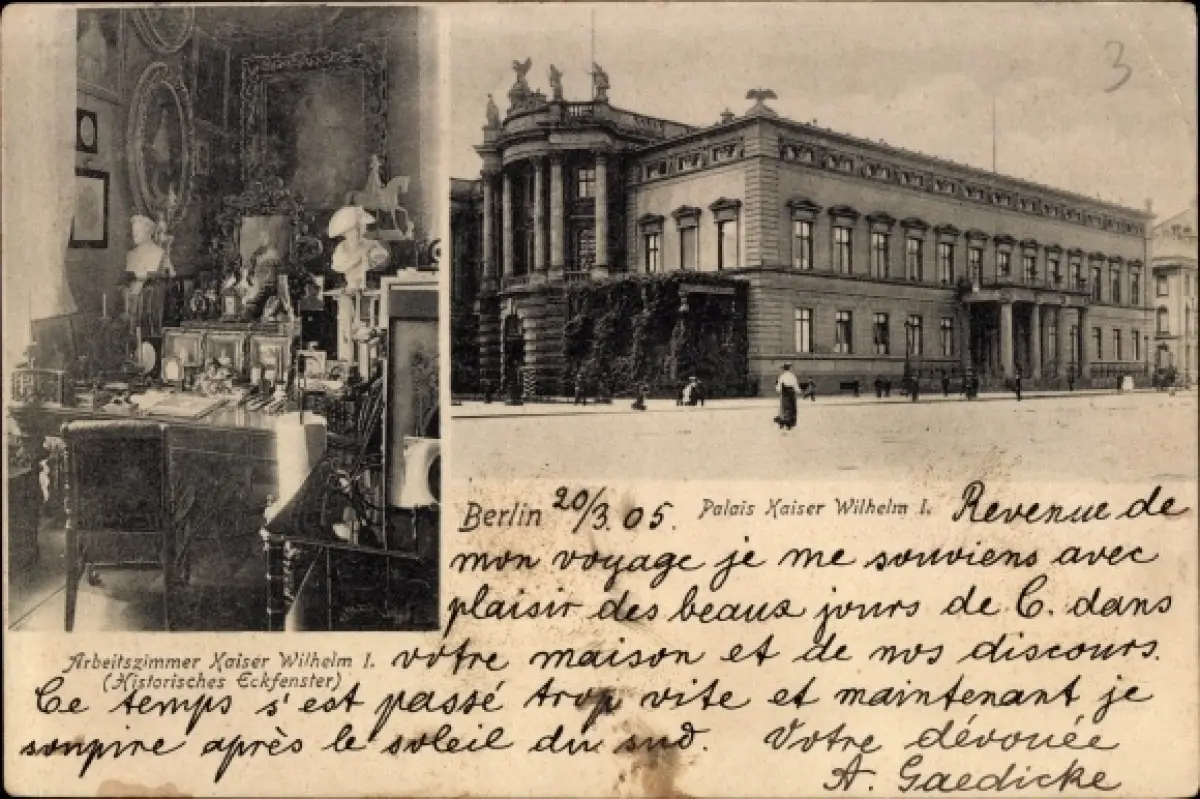 3
Berlin 20/3. 05. Palais Kaiser Wilhelm I. Revenue de
mon voyage je me souviens avec
plaisir des beaux jours de C. dans
Arbeitszimmer Kaiser Wilhelm I. votre maison et de nos discours.
(Historisches Eckfenster)
Ce temps s'est passé trop vite et maintenant je
soupire après le soleil du sud. Votre dévouée
A. Gaedicke